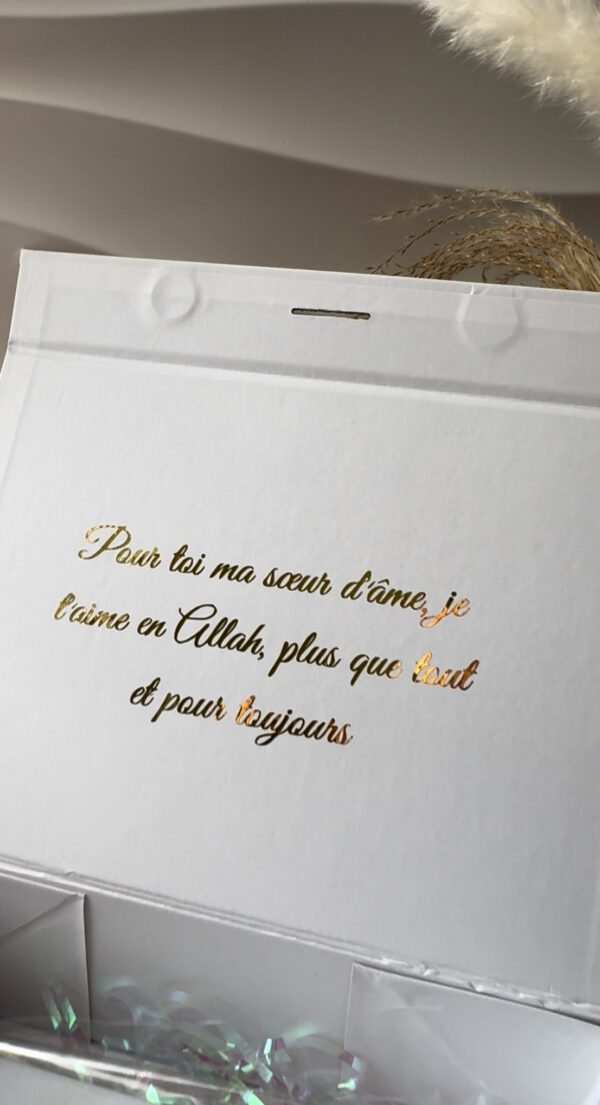 Pour toi ma sœur d'âme, je
t'aime en Allah, plus que tout
et pour toujours